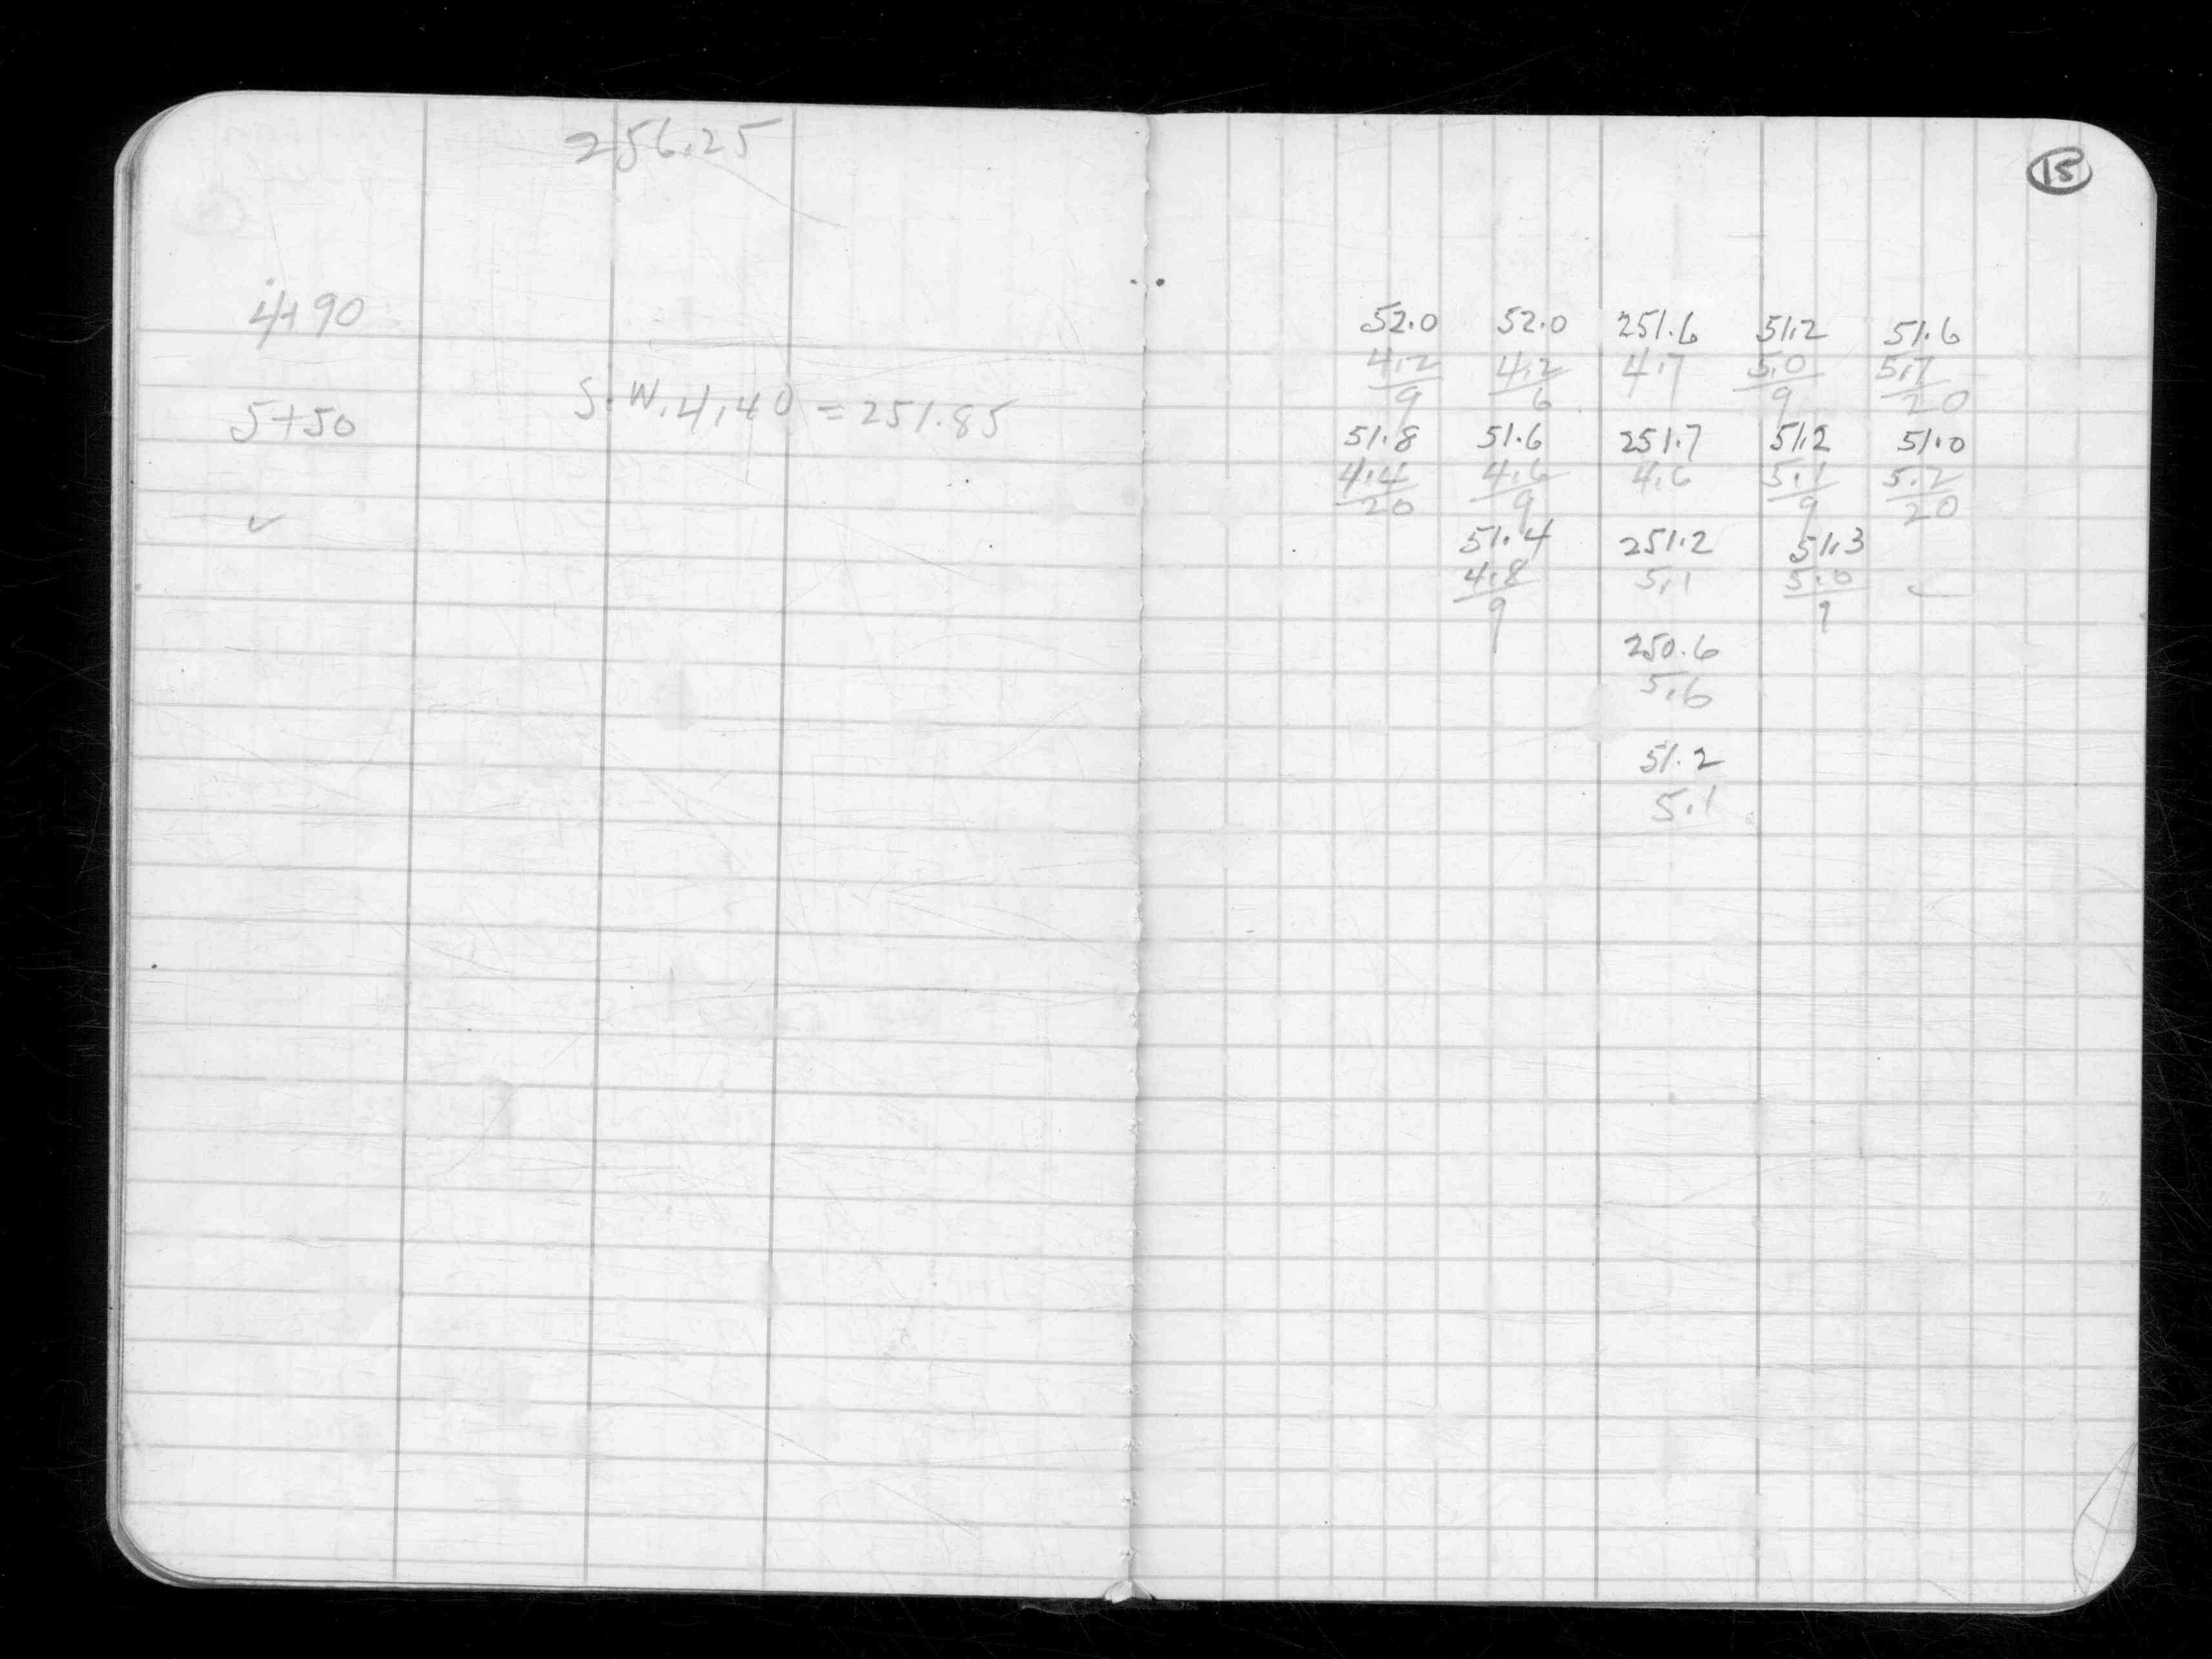 256.25
4+90
5+50
S.W. 4.40 = 251.85
15
52.0 52.0 251.6 51.2 51.6
4.2 4.2 4.7 5.0 5.7
9 6 9 20
51.8 51.6 251.7 51.2 51.0
4.4 4.6 4.6 5.1 5.2
20 9 9 20
51.4 251.2 51.3
4.8 5.1 5.0
9 9
250.6
5.6
51.2
5.1